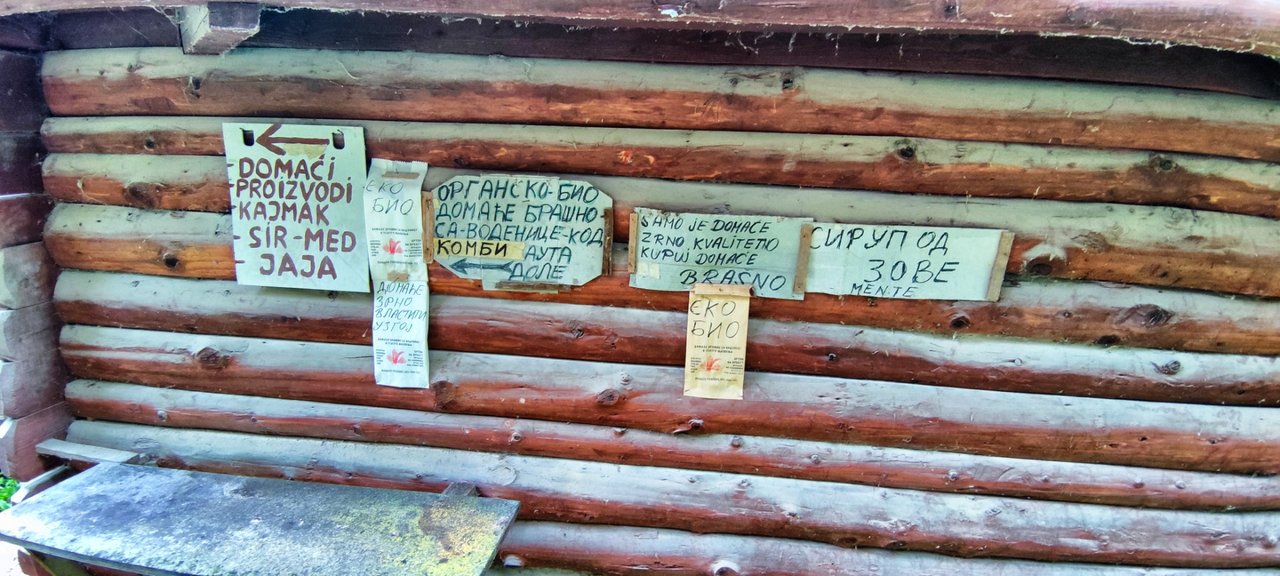 DOMAĆI
-PROIZVODI
KAJMAK
-SIR-MED
JAJA
ЕКО
БИО
ДОМАЋЕ
ЗРНО
ВЛАСТИТИ
УЗГОЈ
ОРГАНСКО-БИО
ДОМАЋЕ БРАШНО-
СА-ВОДЕНИЦЕ-КОД
КОМБИ АУТА
ДОЛЕ
SAMO JE DOMAĆE
ZRNO, KVALITETNO
KUPUJ DOMAĆE
BRAŠNO
ЕКО
БИО
СИРУП ОД
ЗОВЕ
МЕНТЕ